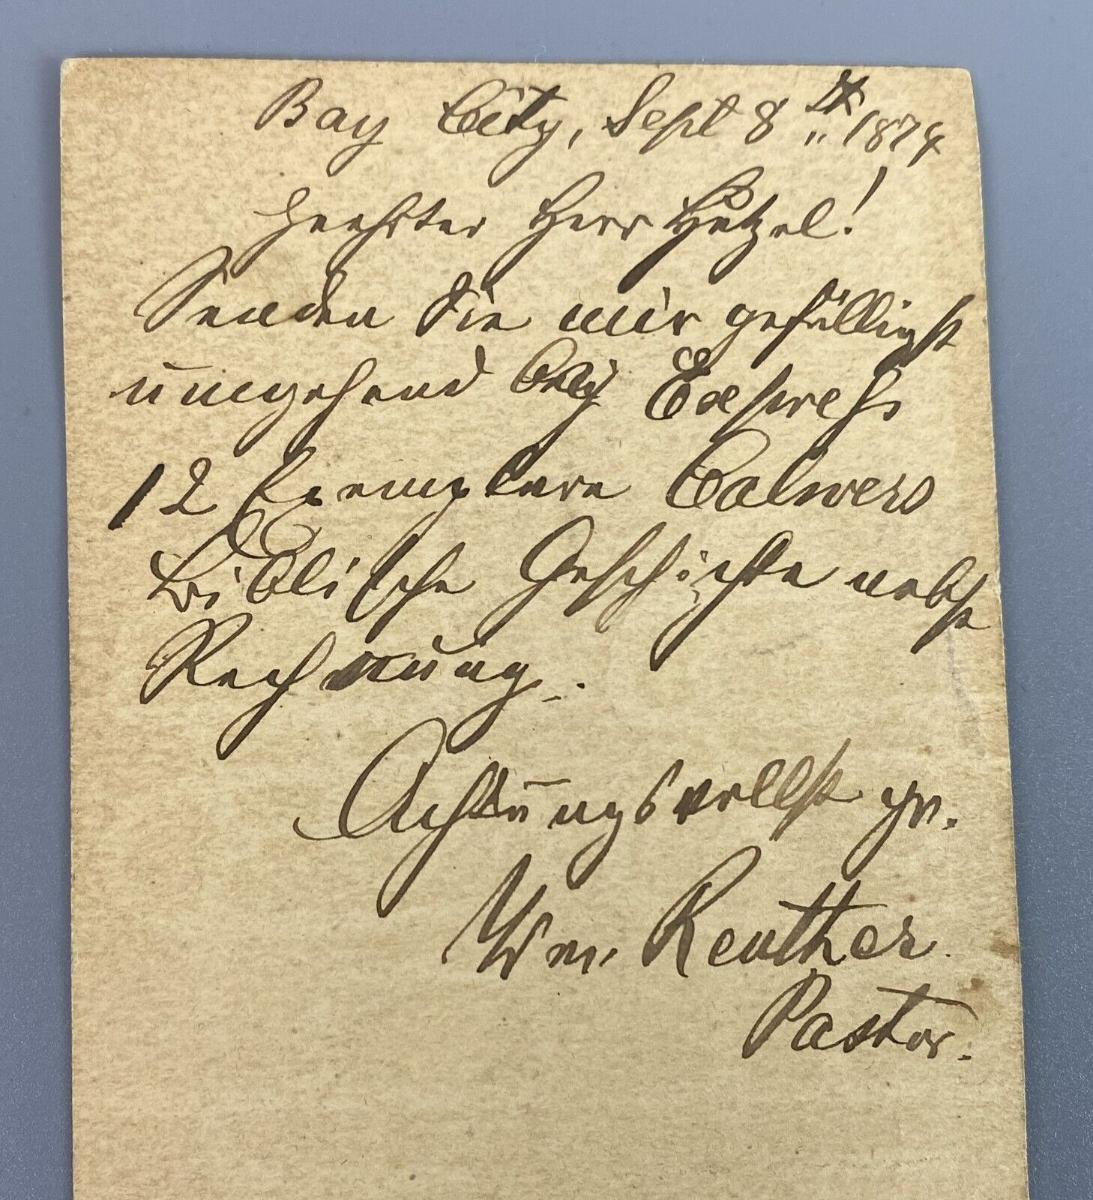 Bay City, Sept 8th 1874
Geehrter Herr Hetzel!
Senden Sie mir gefälligst
umgehend bei Express
12 Exemplare Calwers
Biblische Geschichte nebst
Rechnung.
Achtungsvollst gr.
Wm. Reuther.
Pastor.